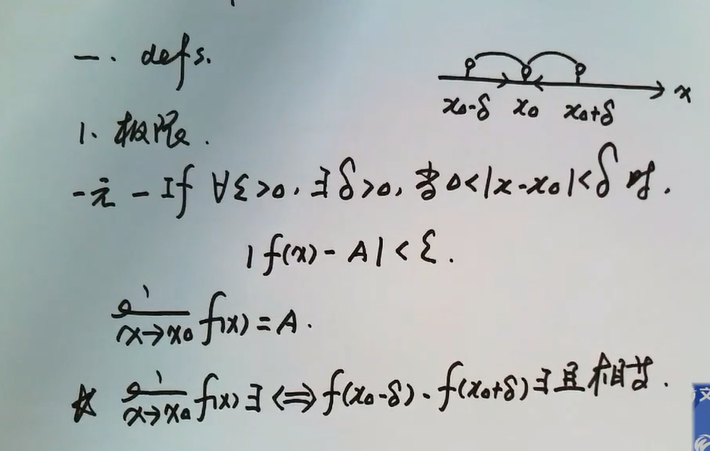 一. defs.
x₀-δ x₀ x₀+δ x
1. 极限.
一元 - If ∀ε>0, ∃δ>0, 当0<|x-x₀|<δ时.
|f(x)-A|<ε.
lim x→x₀ f(x)=A.
☆ lim x→x₀ f(x)∃⟺f(x₀-δ)、f(x₀+δ)∃且相等.
文